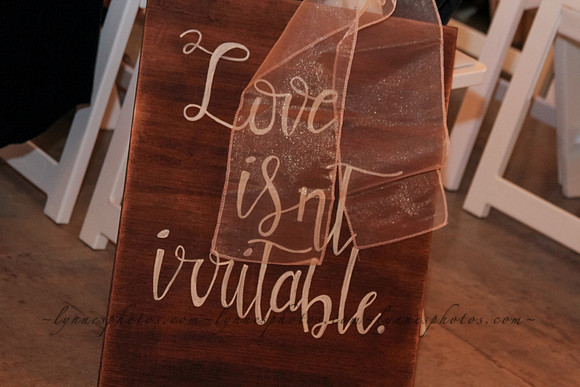 Love
isnt
irritable.
~lynnesphotos.com~lynnesphotos.com~lynnesphotos.com~